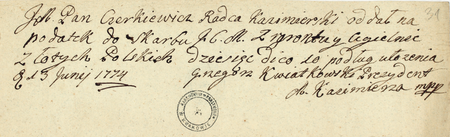 JM Pan Czerkiewicz Radca Kazimierski oddał na
podatek do skarbu J.C.M. z gruntu y Cegielnie
Złotych Polskich dziesięć dico 10 podług ułożenia
d 13 Junij 1774 Grzegorz Kwiatkowski Prezydent
M. Kazimierza mpp
31